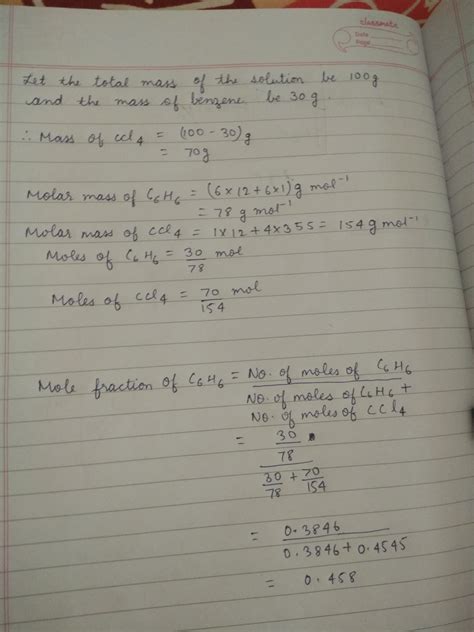 classmate
Date
Page
Let the total mass of the solution be 100g
and the mass of benzene be 30 g.
∴ Mass of CCl4 = (100 - 30)g
= 70g
Molar mass of C6H6 = (6×12+6×1)g mol⁻¹
= 78 g mol⁻¹
Molar mass of CCl4 = 1×12+4×355 = 154 g mol⁻¹
Moles of C6H6 = 30/78 mol
Moles of CCl4 = 70/154 mol
Mole fraction of C6H6 = No. of moles of C6H6
No. of moles of C6H6 +
No. of moles of CCl4
= 30/78
30/78 + 70/154
= 0.3846
0.3846 + 0.4545
= 0.458